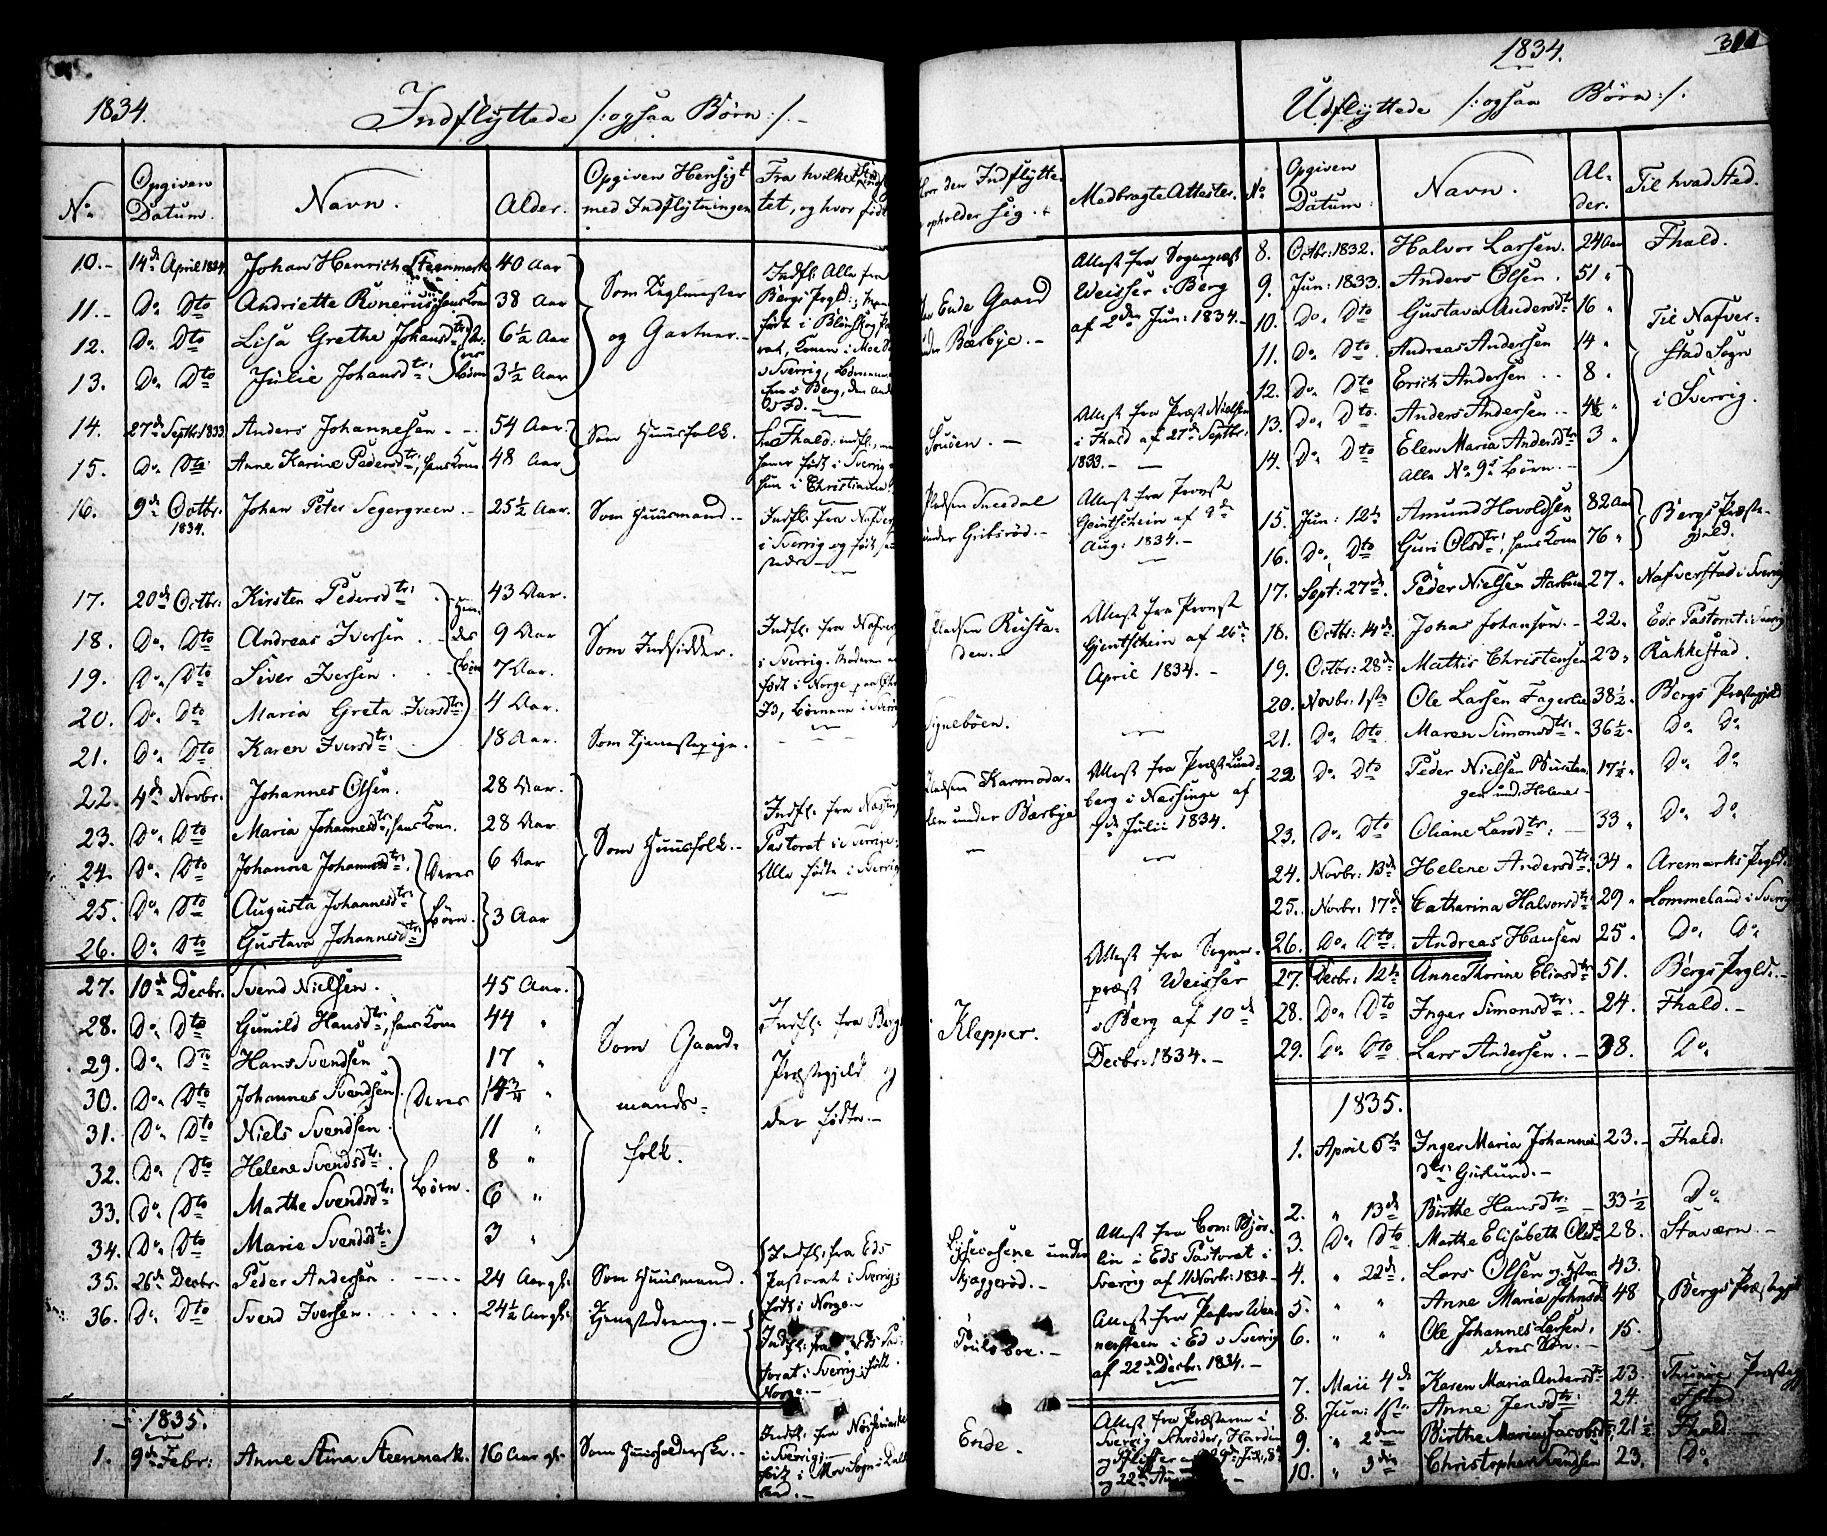 1834.
Indflyttede /: ogsaa Børn :/. –
No
Opgiven Datum.
Navn.
Alder.
Opgiven Hensigt med Indflytningen
Fra hvilket Sted flyttet, og hvor født
10. – 14de April 1834. Johan Henrich Steenmark 40 Aar
11. – Do Dto Andriette Runerius, hans Kone 38 Aar
12. Do Dto Lisa Grethe Johansdtr: 6½ Aar
13. Do Dto Julie Johansdtr: 3½ Aar
Deres Børn
Som Teglmester
og Gartner. –
Indfl: Alle fra
Bergs Prgld:;
14. 27de Septbr: 1833. Anders Johannesen. 54 Aar.
15. Do Dto Anne Karine Pedersdtr:, hans Kone 48 Aar
Som Huusfolk.
Fra Fhald: indfl:,
født i Sverrig
hun i Christiania.
16. 9de Octbr: 1834. Johan Peter Segergreen. – 25½ Aar. Som Huusmand. –
Indfl: fra Nafver
i Sverrig og født
17. 20de Octbr: Kirsten Pedersdtr: 43 Aar.
18. Do Dto Andreas Iversen. 9 Aar
19. Do Dto Siver Iversen. 7 Aar.
20. Do Dto Maria Greta Iversdtr: 4 Aar.
Hendes Børn
Som Indsidder.
Indfl: fra Nafver
i Sverrig. Moderen
født i Norge
Børnene i Sverrig
21. Do Dto Karen Iversdtr: 18 Aar. Som Tjenestepige.
22. 4de Novbr: Johannes Olsen. 28 Aar.
23. Do Dto Maria Johannesdtr:, hans Kone. 28 Aar
24. Do Dto Johanne Johannesdtr: 6 Aar
25. Do Dto Augusta Johannesdtr:
26. Do Dto Gustava Johannesdtr:
3 Aar
Deres Børn.
Som Huusfolk. –
Indfl: fra Nassing
Pastorat i Sverrige.
Alle fødte i Sverrig
27. 10de Decbr: Svend Nielsen. 45 Aar.
28. Do Dto Gunild Hansdtr:, hans Kone 44 "
29. Do Dto Hans Svendsen 17 "
30. Do Dto Johannes Svendsen 14¾ "
31. Do Dto Niels Svendsen. 11 "
32. Do Dto Helene Svendsdtr: 8 "
33. Do Dto Marthe Svendsdtr: 6 "
34. Do Dto Marie Svendsdtr: 3 "
Deres Børn.
Som Gaard-
mands-
folk.
Indfl: fra Bergs
Præstegjeld og
der fødte. –
35. 26de Decbr: Peder Andersen. 24 Aar gl: Som Huusmand.
Indfl: fra Eds
Pastorat i Sverrig;
født i Norge. –
36. Do Dto Svend Iversen. 24½ Aar gl: Tjenestedreng. –
Indfl: fra Eds Pas-
torat i Sverrig, født i
Norge. –
1835.
1. 9de Febr: Anne Stina Steenmark. 16 Aar gl: Som Huusholderske. –
Indfl: fra
i Sverrig;
født i Moe Sogn i
land. –
Hvor den Indflytte
opholder sig.
Medbragte Attester.
Ende Gaard
under Bærbye. –
Attest fra Sognepræst
Weisser i Berg
af 2den Jun: 1834. –
Souen. –
Attest fra Præst Nielsen
i Fhald af 27de Septbr:
1833. –
Pladsen
under Gribsrød. –
Attest fra Provst
Gjentschein af 9de
Aug: 1834. –
Pladsen Reista-
den. –
Attest fra Provst
Gjentschein af
April 1834. –
Signebøen.
Pladsen Karmoda-
len under Bærbye
Attest fra Præst Lund-
berg i Nassinge af
Julii 1834.
Klepper.
Attest fra Sogne-
præst Weisser
i Berg af 10de
Decbr: 1834. –
under
Skjaggerød. –
Attest fra Com: Bjør-
lin i Eds Pastorat i
Sverrig af 11 Novbr: 1834. –
Poulsboe. –
Attest fra Pastor Wen-
nersteen i Ed i Sverrig
af 22de Decbr: 1834. –
Ende.
Attest fra Præsterne i
Sverrig Schrøder,
1834.
Udflyttede /: ogsaa Børn :/.
No
Opgiven Datum.
Navn.
Alder.
Til hvad Sted.
8. Octbr: 1832. Halvor Larsen. 24 Aar Fhald.
9. Jun: 1833. Anders Olsen. 51 "
10. Do Dto Gustava Andersdtr: 16 "
11. Do Dto Andreas Andersen 14 "
12. Do Dto Erich Andersen. 8 "
13. Do Dto Anders Andersen. 4½ "
14. Do Dto Elen Maria Andersdtr: 3 "
Alle No 9s Børn. –
Til Nafver-
stad Sogn
i Sverrig.
15. Jun: 12te Amund Hovoldsen 82 Aar
16. Do Dto Guri Olsdtr:, hans Kone 76 "
Bergs Præste-
gjeld.
17. Sept: 27de Peder Nielsen Aarbue 27 " Nafverstad i Sverrig
18. Octbr: 14de Johas Johanson. – 22. Eds Pastorat i Sverig
19. Octbr: 28de Mathis Christensen 23 " Rakkestad.
20. Novbr: 1ste Ole Larsen Fagerlie 38½ " Bergs Præstegjeld
21. Do Dto Maren Simonsdtr: 36½ " Do Do
22 Do Dto Peder Nielsen
17½ " Do Do
23. Do Dto Oliane Larsdtr: 33 " Do Do
24. Novbr: 13de Helene Andersdtr: 34 " Aremarks Prgld:
25. Novbr: 17de Catharina Halvorsdtr: 29 " Lommeland i Sverrig
26. Do Dto Andreas Hansen 25 " Do Do
27. Decbr: 12te Anne Thorine Eliasdtr: 51. Bergs Prgld: –
28. Do Dto Inger Simonsdtr: – 24. Fhald. –
29. Do Dto Lars Andersen. – 38. Do
1835.
1. April 5te Inger Maria Johannes
dtr: Guslund. – 23. – Fhald:
2. " 13de Birthe Hansdtr: – 33½ Do
3. Do Dto Marthe Elisabeth Olsdtr 28. Staværn. –
4. " 22de. Lars Olsen og Hstru 43.
5. " " Anne Maria Johnsd 48
6. " " Ole Johannes Larsen, 15.
deres Søn. –
Bergs Præstegjeld
7. Maii 4de Karen Maria Andersdtr 23.
8. Jun: 1ste Anne Jensdtr: 24. Idd.
9. " 2den Birthe Maria Jacobsdtr: 21½ Fhald. –
10. " 3die Christopher Knudsen 23. Do